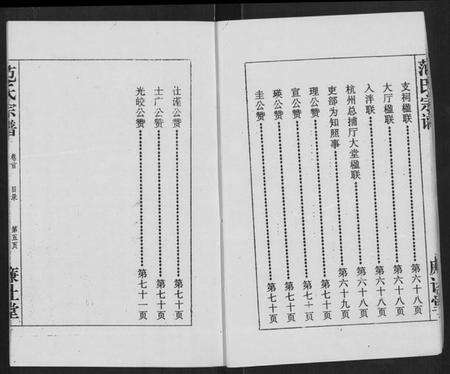 范氏宗谱
支祠楹联 第六十八页
大厅楹联 第六十八页
入泮联 第六十八页
杭州总捕厅大堂楹联 第六十八页
吏部为知照事 第六十九页
理公赞 第七十页
宣公赞 第七十页
瑛公赞 第七十页
圭公赞 第七十页
仕谨公赞 第七十页
士广公赞 第七十页
光皎公赞 第七十一页
范氏宗谱
卷首
目录
第五页